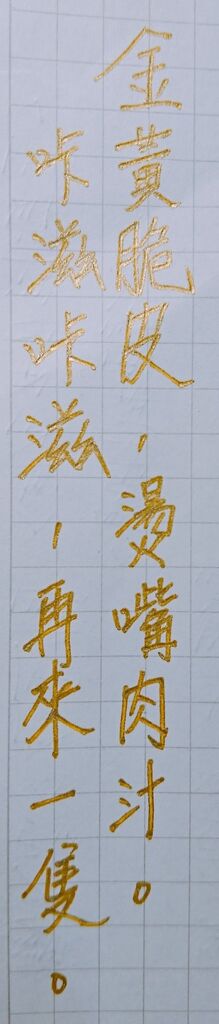 金黃脆皮，燙嘴肉汁。
咔滋咔滋，再來一隻。